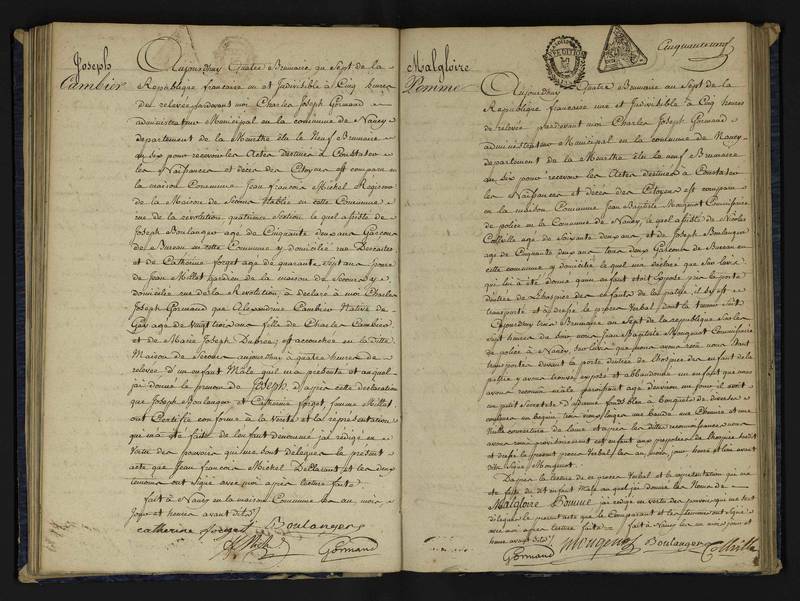 Joseph
Cambier
Aujourdhuy Quatre Brumaire an Sept de la
République francaise un et Indivisible à Cinq heures
de relevée pardevant moi Charles Joseph Gormand
administrateur Municipal en la commune de Nancy
departement de la Meurthe élu le Neuf Brumaire
an six pour recevoir les Actes destinés à Constater
les Naissances et décès des Citoyens est comparu en
la maison Commune Jean francois Michel Régisseur
de la Maison de Secours Etablie en cette Commune
rue de la revolution, quatrieme Section, le quel assisté de
Joseph Boulanger age de Cinquante deux ans Garcon
de Bureau en cette Commune y domicilié rue Descartes
et de Catherine forget age de quarante Sept ans
de Jean Millot de la maison de Secours
domiciliée rue de la Revolution, à déclaré à moi Charles
Joseph Gormand que Alexandrine Cambier Native de
age de Vingt trois ans fille de Charles Cambier
et de Marie Joseph est accouchée en la ditte
Maison de Secours aujourdhuy à quatre heures de
relevée d'un Enfant Mâle qu'il m'a présenté et auquel
j'ai donné le prenom de Joseph, d'après cette déclaration
que Joseph Boulanger et Catherine forget femme Millot
ont Certifié conforme à la Vérité et la représentation
que m'a été faite de l'enfant denommé j'ai rédigé en
Vertu des pouvoirs qui me sont délégués le présent
acte que Jean francois Michel Déclarant et les deux
temoins ont Signé avec moi après lecture faite.
fait à Nancy en la maison Commune les an, mois,
Jour et heures avant dits
catherine forget Boulanger
Gormand
Malgloire
Pomme
Aujourdhuy Quatre Brumaire an Sept de la
République francaise une et Indivisible à Cinq heures
de relevée pardevant moi Charles Joseph Gormand
administrateur Municipal en la commune de Nancy
departement de la Meurthe élu le neuf Brumaire
an six pour recevoir les Actes destinés à Constater
les Naissances et décès des Citoyens est comparu
en la maison Commune Jean Baptiste Mougenot Commissaire
de police en la Commune de Nancy, le quel assisté de Nicolas
age de Soixante deux ans, et de Joseph Boulanger
age de Cinquante deux ans tous deux Garcons de Bureau en
cette commune y domiciliés le quel m'a déclaré que Sur l'avis
qui lui a été donné qu'un enfant etoit Exposé près la porte
d'entrée de l'hospice des enfants de la patrie, il s'y est
transporté et a dressé le procès Verbal, dont la teneur Suit
Aujourdhuy trois Brumaire an Sept de la republique Sur les
Sept heures du Soir nous Jean Baptiste Mougenot Commissaire
de police à Nancy, Sur l'avis que nous avons recu nous Sommes
transportés devant la porte d'entrée de l'hospice des enfant de la
patrie y avons trouvé exposé et abandonné un enfant que nous
avons reconnu mâle paroissant age d'environ un jour il avoit
un
une Chemise et une
couverture de laine et après les dittes reconnoissances nous
avons remis provisoirement cet enfant aux preposés de l'hospice Sudit
et dressé le present procès Verbal les an, mois, Jour, heure et lieu avant
dits Signé Mougenot.
D'après la lecture de ce procès Verbal et la représentation qui m'a
été faite de dit enfant Mâle auquel j'ai donné les Noms de
Malgloire Pomme j'ai redigé en vertu des pouvoirs qui me sont
délégués le present acte que le Comparant et les temoins ont Signé
avec moi après lecture faite fait à Nancy les an mois jour et
heure avant dits
Gormand Mougenot Boulanger